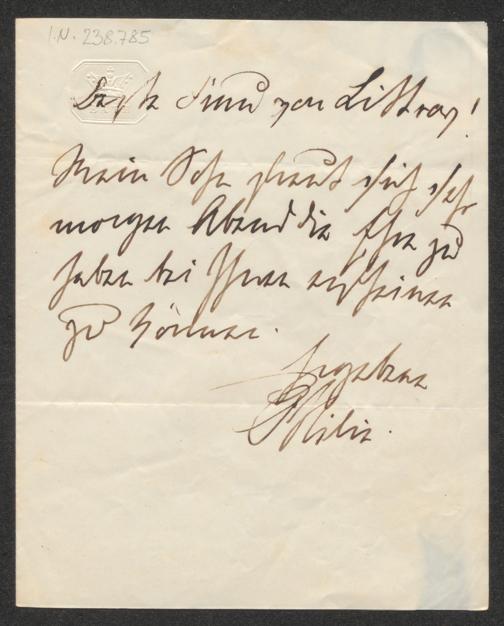 I.N. 238.785
Beste Frau von Littrow!
Mein Sohn freut sich sehr
morgen Abend die Ehre zu
haben bei Ihnen erscheinen
zu können.
Ergebene